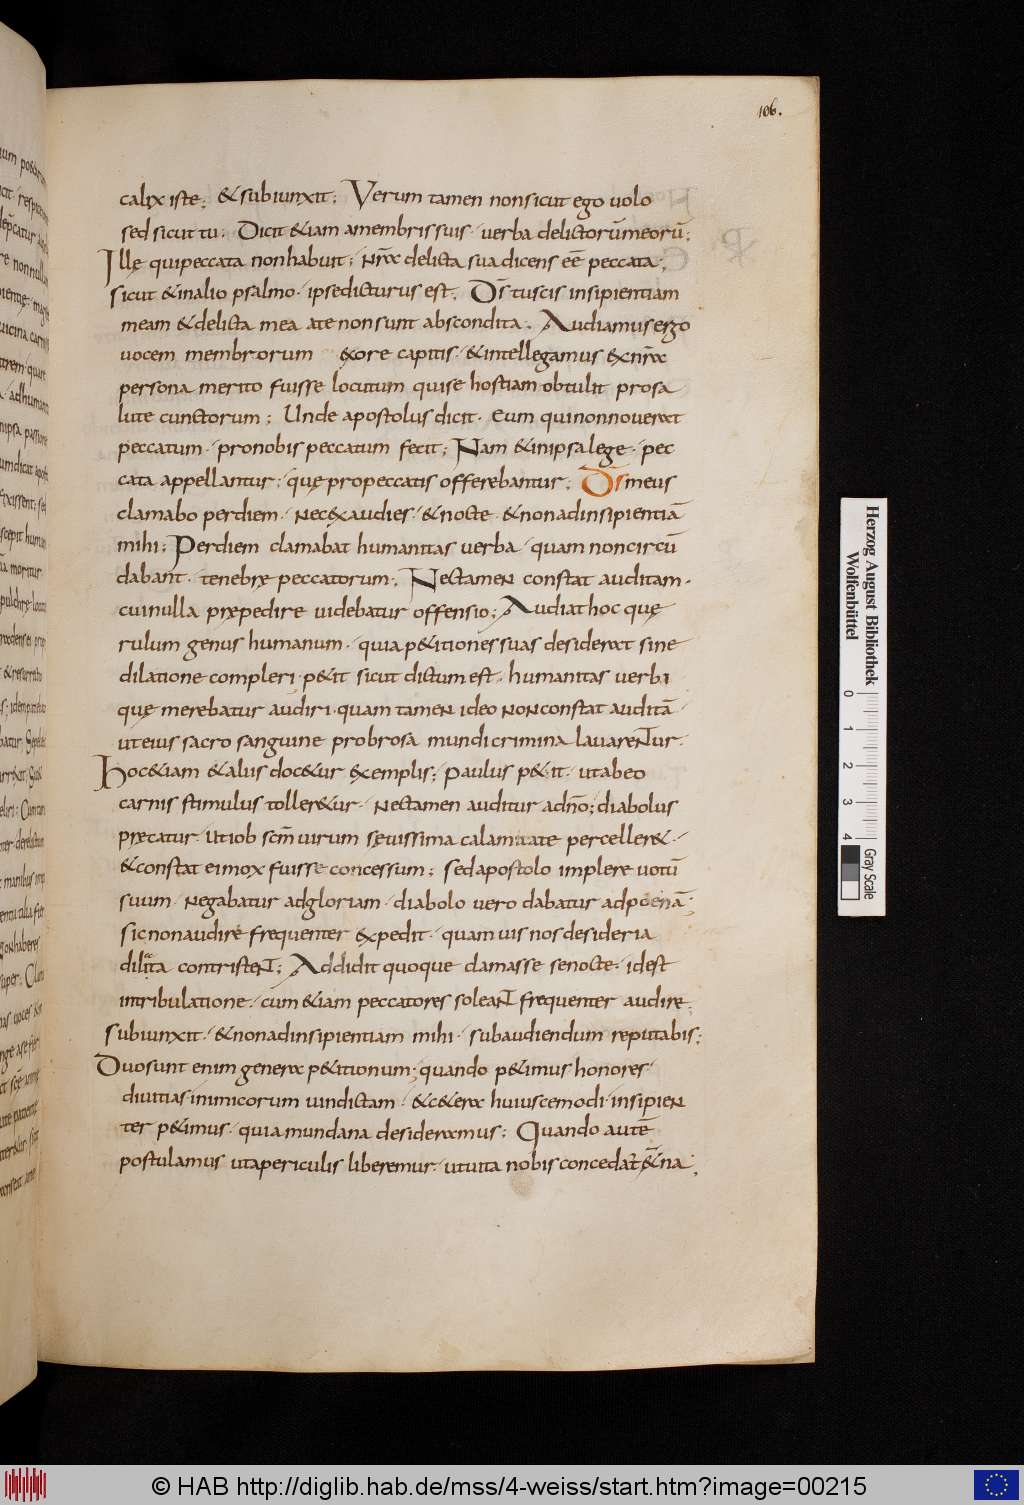 106.
calix iste; & subiunxit; Verum tamen non sicut ego uolo
sed sicut tu; Dicit &iam amembris suis · uerba delictorū meorū;
Ille qui peccata non habuit; nr̄a delicta sua dicens eē peccata;
sicut & in alio psalmo · ipse dicturus est; Ds̄ tu scis insipientiam
meam & delicta mea a te non sunt abscondita; Audiamus ergo
uocem membrorum & ore capitis · & intellegamus ex nr̄a
persona merito fuisse locutum qui se hostiam obtulit pro sa
lute cunctorum; Unde apostolus dicit · Eum qui non nouerat
peccatum · pro nobis peccatum fecit; Nam & in ipsa lege · pec
cata appellantur · quę pro peccatis offerebantur; Ds̄ meus
clamabo per diem · nec exaudies · & nocte · & non ad insipientiā
mihi; Per diem clamabat humanitas uerba · quam non circū
dabant · tenebrę peccatorum; Nec tamen constat auditam ·
cui nulla prępedire uidebatur offensio; Audiat hoc quę
rulum genus humanum · quia p&itiones suas desiderat sine
dilatione compleri · p&iit sicut dictum est · humanitas uerbi
quę merebatur audiri · quam tamen ideo non constat auditā ·
ut eius sacro sanguine probrosa mundi crimina lauarentur ·
Hoc &iam & aliis doc&ur exemplis; Paulus p&iit · ut ab eo
carnis stimulus toller&ur · nec tamen auditur ad n̄o; diabolus
pręcatur · ut iob sc̄m uirum sęuissima calamitate perceller& ·
& constat ei mox fuisse concessum; sed apostolo implere uotū
suum · negabatur ad gloriam · diabolo uero dabatur ad poenā;
sic non audiré frequenter expedit · quamuis nos desideria
dilata contristent; Addidit quoque clamasse se nocte · id est
in tribulatione · cum &iam peccatores soleant frequenter audire;
subiunxit · & non ad insipientiam mihi · subaudiendum reputabis;
Duo sunt enim genera p&itionum; quando p&imus honores ·
diuitias inimicorum uindictam · & c&era huiuscemodi · insipien
ter p&imus · quia mundana desideramus; Quando autē
postulamus ut a periculis liberemur · ut uita nobis conceda&̄ &na;
Herzog August Bibliothek
Wolfenbüttel
0 1 2 3 4
Gray Scale
© HAB http://diglib.hab.de/mss/4-weiss/start.htm?image=00215